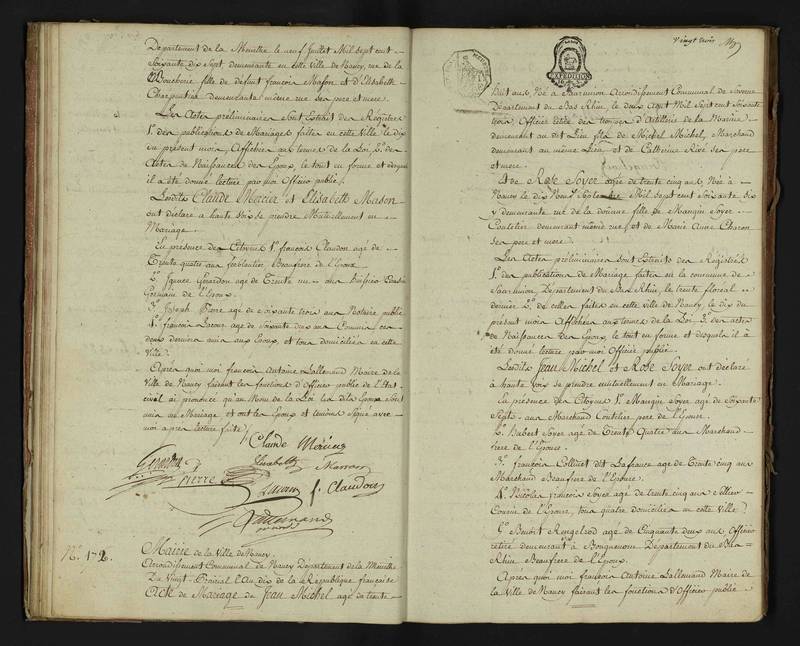 Departement de la Meurthe le neuf Juillet Mil sept cent
Soixante dix Sept demeurante en cette ville de Nancy, rue de la
Boucherie fille de défunt françois Mason et d'Elisabeth
Charpentier demeurante même rue ses pere et mere.
Les Actes préliminaires sont Extrait des Registres
1° des publications de Mariages faites en cette Ville le dix
du présent mois, Affichées aux termes de la Loi, 2° des
Actes de Naissances des Epoux, le tout en forme et desquels
il a été donné lecture par moi Officier public.
Lesdits Claude Mercier et Elisabeth Mason
ont déclaré a haute voix se prendre Mutuellement en
Mariage.
En presence des Citoyens 1° françois Claudon agé de
Trente quatre ans ferblantier Beaufrere de l'Epouse
2° Ignace Gerardon agé de Trente
Germain de l'Epoux.
3° Joseph Pierre agé de Soixante trois ans Notaire public
4° françois agé de Soixante deux ans Commis ces
deux derniers amis aux Epoux, et tous domiciliés en cette
Ville.
Après quoi moi françois Antoine Lallemand Maire de la
Ville de Nancy faisant les fonctions d'Officier public de l'Etat
civil ai prononcé qu'au Nom de la Loi les dits Epoux sont
unis en Mariage et ont les Epoux et témoins Signé avec
moi après lecture faite.
Claude Mercier
Elisabeth Mason
Pierre
f. Claudon
Lallemand
N°. 172.
Mairie de la Ville de Nancy.
Arrondissement Communal de Nancy Département de la Meurthe
Du Vingt Prairial L'An dix de la République française
Acte de Mariage de Jean Michel agé de trente
Vingt trois
EXPEDITION
huit ans, Né à Saarunion Arrondissement Communal de Saverne
Département du Bas Rhin, le deux Aout Mil Sept cent Soixante
trois, Officier retiré des troupes d'Artillerie de la Marine
demeurant au dit Lieu fils de Michel Michel, Marchand
demeurant au même Lieu et de Catherine Rivé ses pere
et mere.
& de Rose Soyer agée de trente cinq ans Née à
Nancy le dix Neuf Septembre Mil Sept cent Soixante Six
y demeurante rue de la douane fille de Mangin Soyer
Coutelier demeurant même rue, et de Marie Anne Charon
ses pere et mere.
Les Actes préliminaires sont Extraits des Registres
1° des publications de Mariage faites en la commune de
Saarunion, Département du Bas Rhin, le trente floreal
dernier, 2° de celles faites en cette ville de Nancy, le dix du
présent mois Affichées aux termes de la Loi 3° des actes
de Naissances des Epoux, le tout en forme et desquels il à
été donné lecture par moi Officier public.
Lesdits Jean Michel et Rose Soyer ont déclaré
à haute Voix se prendre mutuellement en Mariage.
En présence des Citoyens 1° Mangin Soyer agé de Soixante
Sept ans Marchand Coutelier pere de l'Epouse.
2° Hubert Soyer agé de Trente Quatre ans Marchand
frere de l'Epouse.
3° françois Collinet dit Lafrance agé de Trente cinq ans
Marchand Beaufrere de l'Epouse.
4° Nicolas françois Soyer agé de trente cinq ans
Cousin de l'Epouse, tous quatre domiciliés en cette Ville.
Benoit Rengelrod agé de Cinquante deux ans Officier
retiré demeurant à Bouquenom Département du Bas
Rhin Beaufrere de l'Epoux.
Après quoi moi françois Antoine Lallemand Maire de
la Ville de Nancy faisant les fonctions d'Officier public